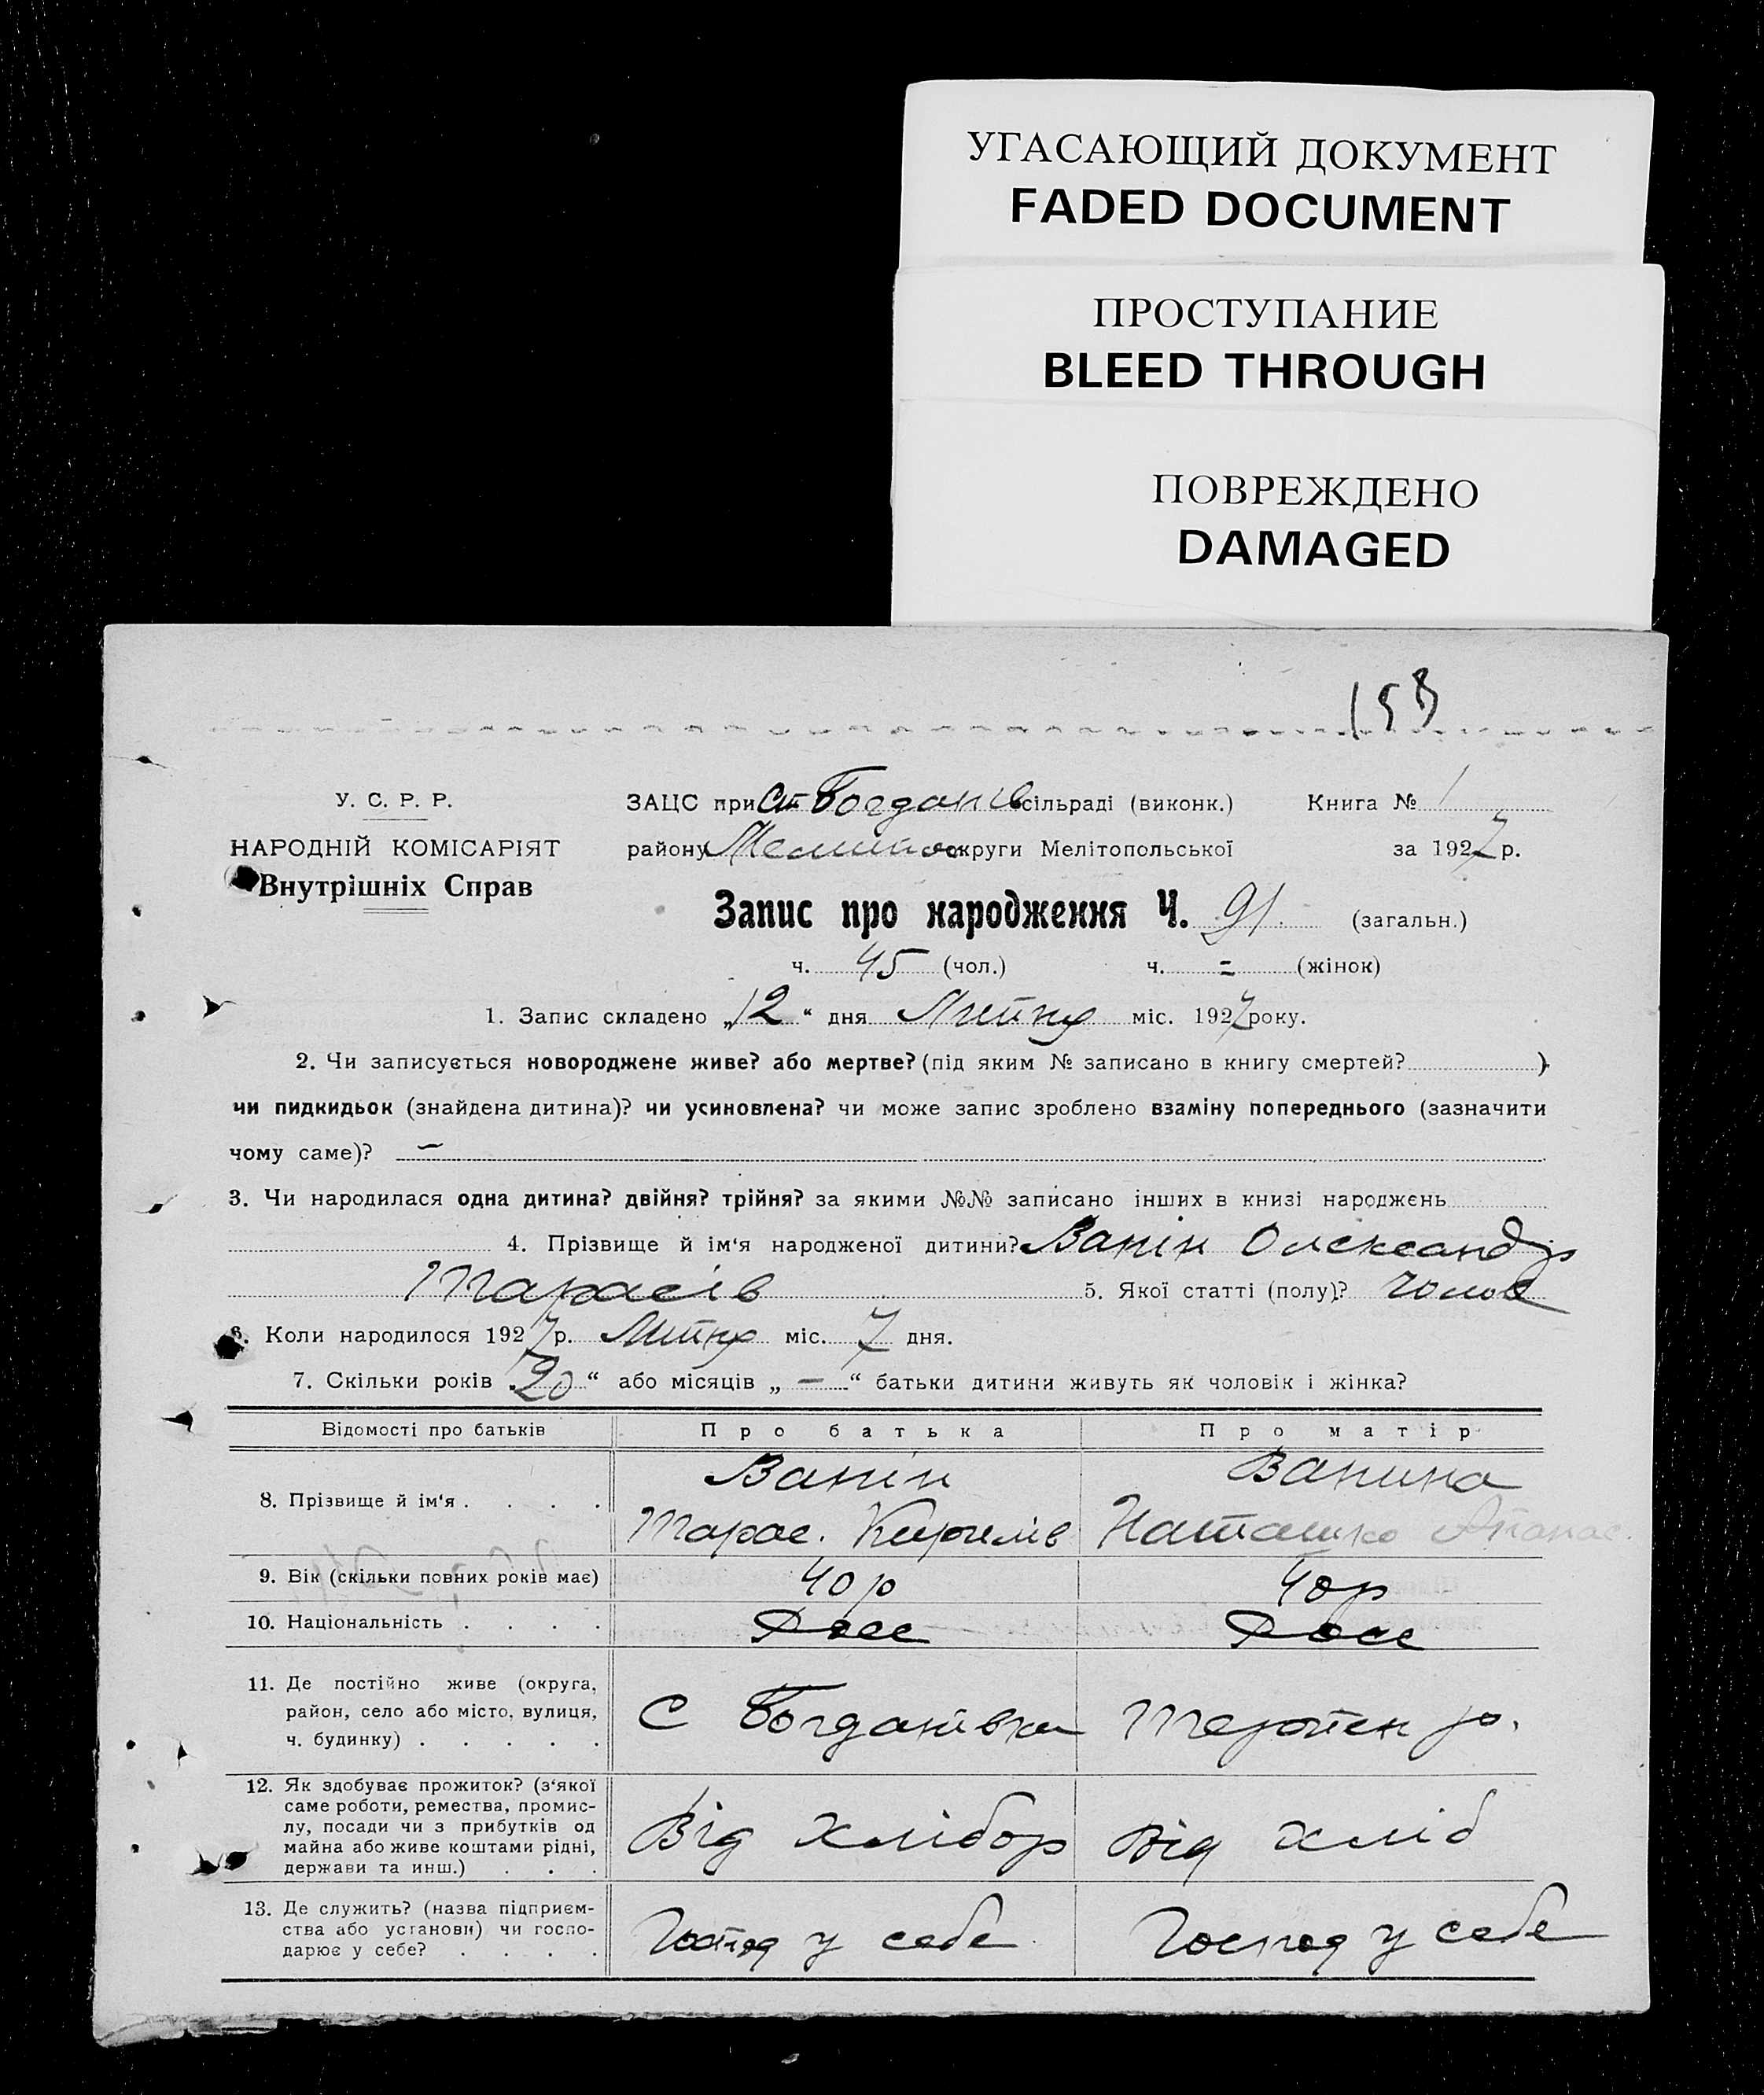 УГАСАЮЩИЙ ДОКУМЕНТ
FADED DOCUMENT
ПРОСТУПАНИЕ
BLEED THROUGH
ПОВРЕЖДЕНО
DAMAGED
У. С. Р. Р.
НАРОДНІЙ КОМІСАРІЯТ
Внутрішніх Справ
ЗАЦС при Ст Богданів сільраді (виконк.) Книга № 1
району округи Мелітопольської за 1927 р.
Запис про народження Ч. 91 (загальн.)
ч. 45 (чол.) ч. = (жінок)
1. Запис складено „12“ дня Липня міс. 1927 року.
2. Чи записується новороджене живе? або мертве? (під яким № записано в книгу смертей? )
чи пидкидьок (знайдена дитина)? чи усиновлена? чи може запис зроблено взаміну попереднього (зазначити
чому саме)? —
3. Чи народилася одна дитина? двійня? трійня? за якими №№ записано інших в книзі народжень
4. Прізвище й ім‘я народженої дитини? Ванін Олександр
Тарасів 5. Якої статті (полу)? чолов
6. Коли народилося 1927 р. Липня міс. 7 дня.
7. Скільки років „20“ або місяців „ — “ батьки дитини живуть як чоловік і жінка?
Відомості про батьків Про батька Про матір
8. Прізвище й ім‘я . . . . Ванін Ванина
Тарас. Кирилів Наташка Апанас.
9. Вік (скільки повних років має) 40 р 40 р
10. Національність . . . . Росс Росс
11. Де постійно живе (округа,
район, село або місто, вулиця,
ч. будинку) . . . . .
С Богданівка Терпен р.
12. Як здобуває прожиток? (з‘якої
саме роботи, ремества, промис-
лу, посади чи з прибутків од
майна або живе коштами рідні,
держави та инш.) . . .
Від хлібор Від хліб
13. Де служить? (назва підприєм-
ства або установи) чи госпо-
дарює у себе? . . . .
Господ у себе Господ у себе